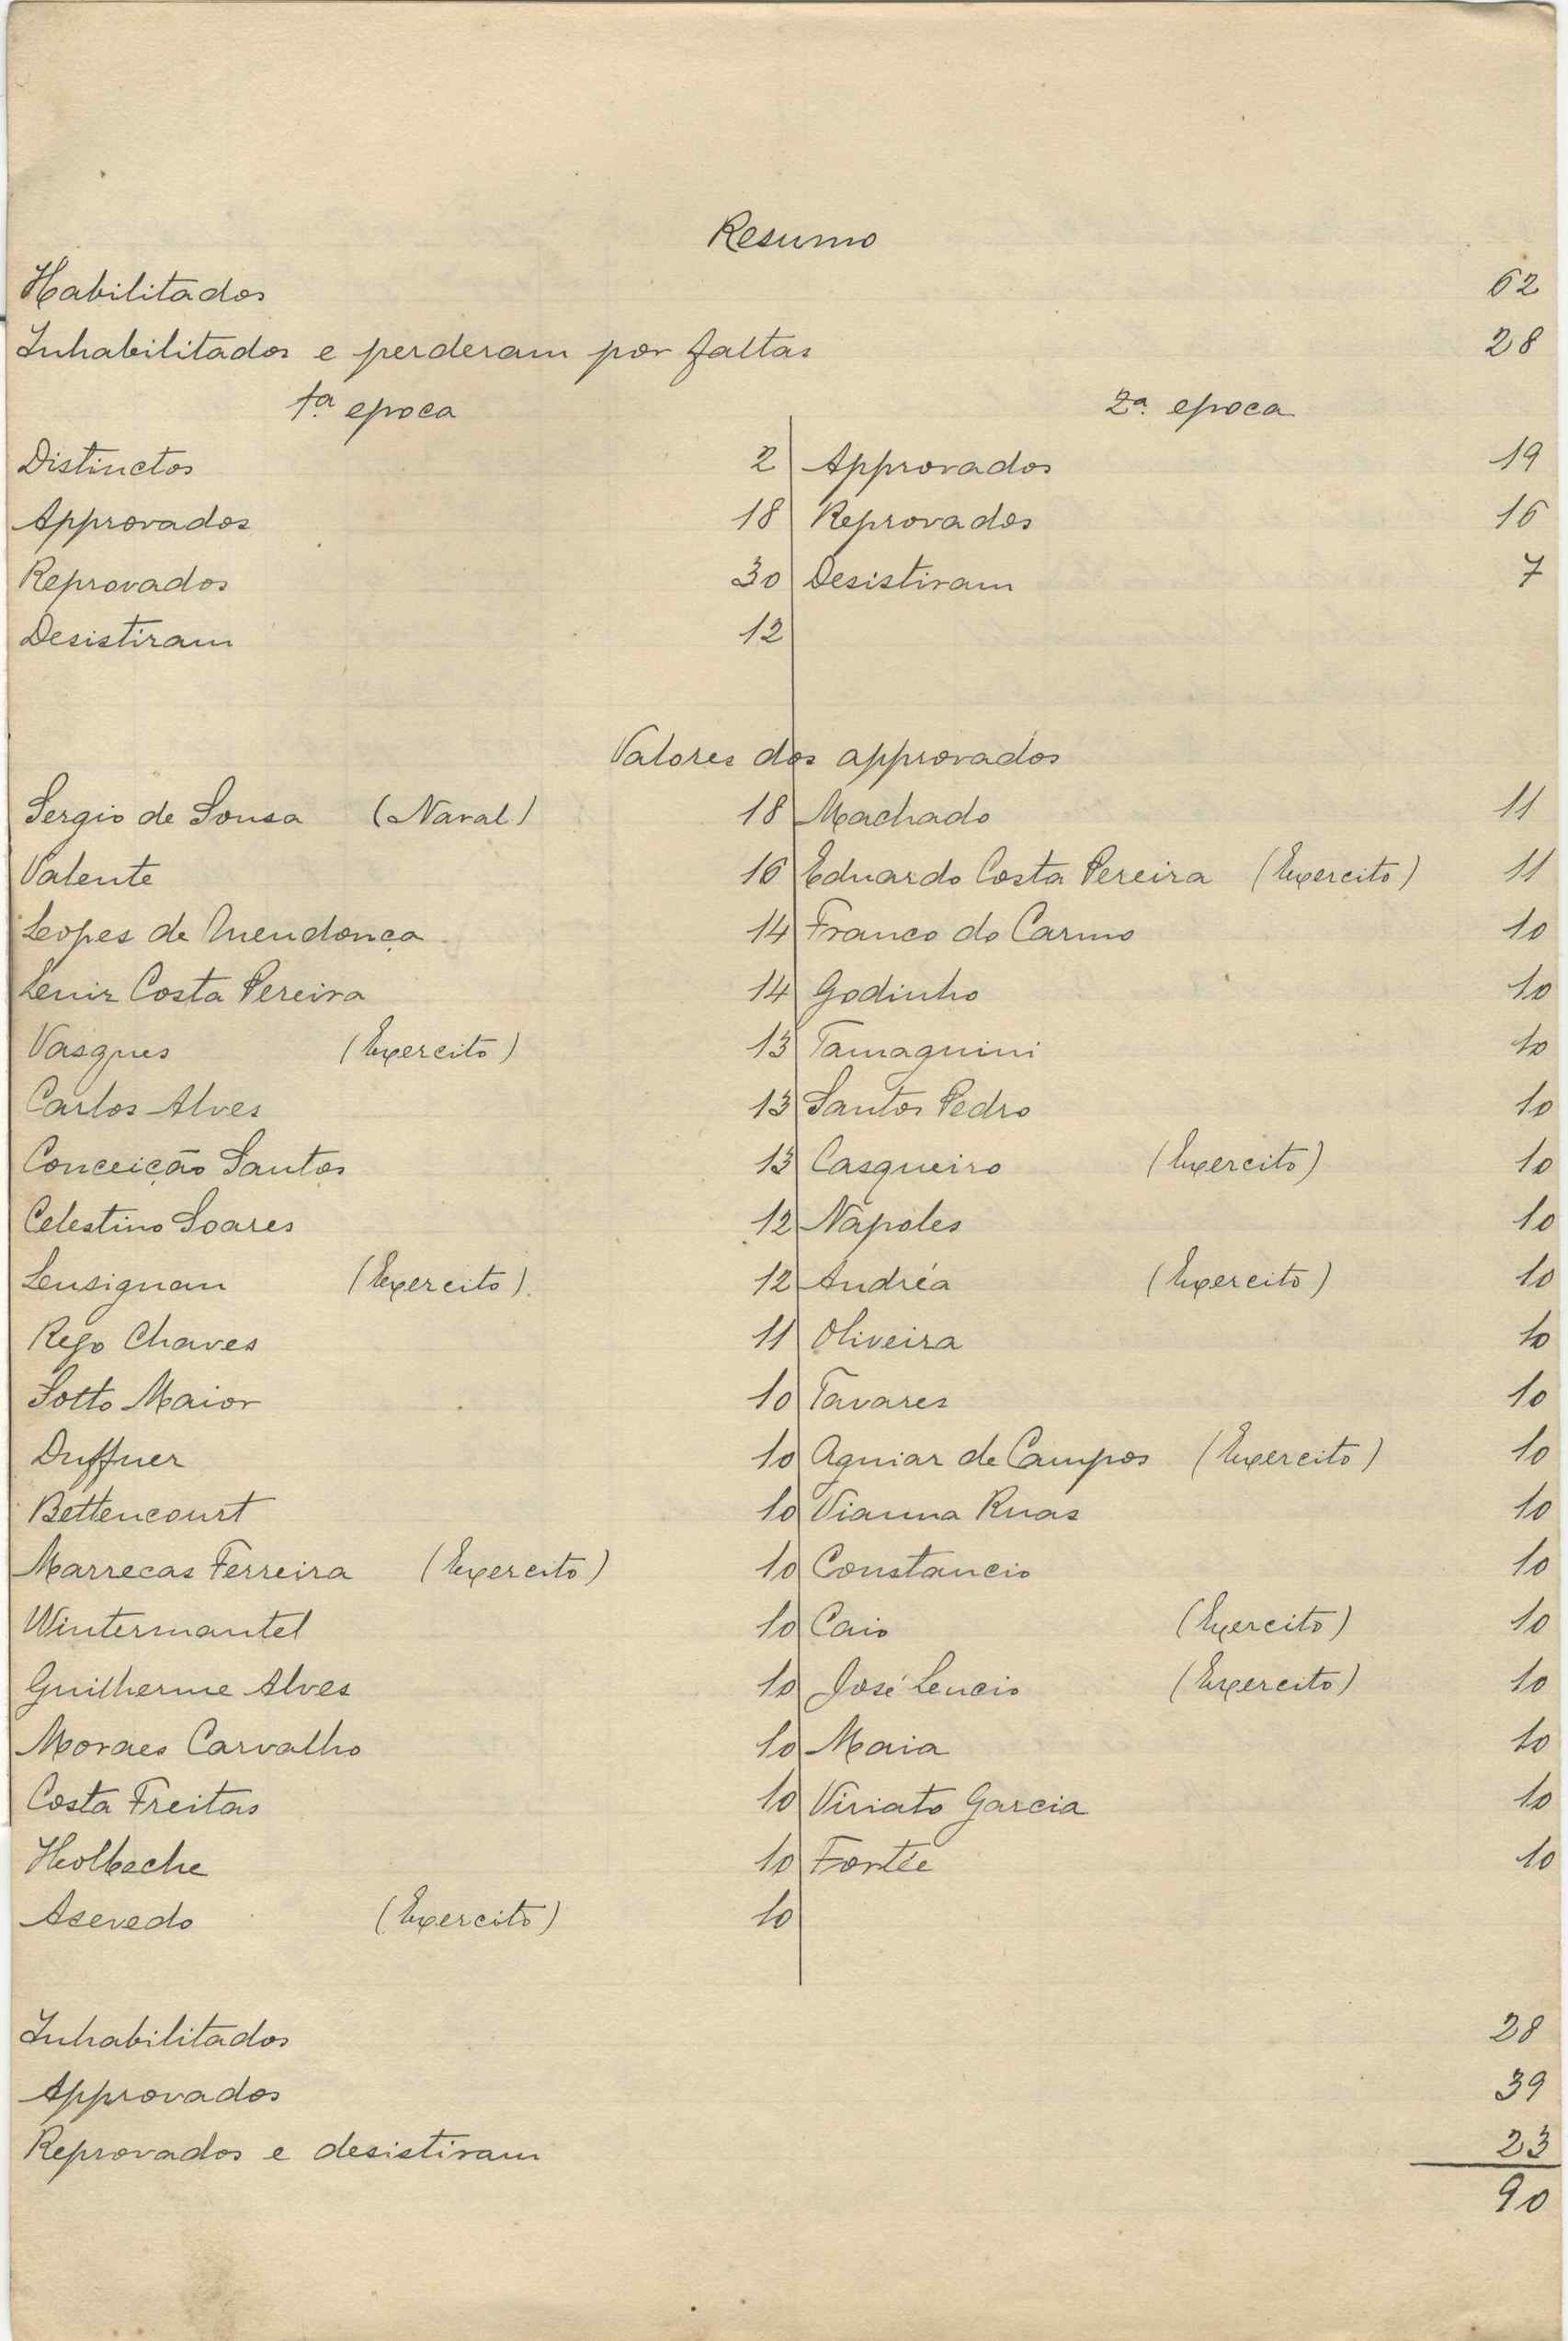 Resumo
Habilitados 62
Inhabilitados e perderam por faltas 28
1.ª epoca 2.ª epoca
Distinctos 2 Approvados 19
Approvados 18 Reprovados 16
Reprovados 30 Desistiram 7
Desistiram 12
Valores dos approvados
Sergio de Sousa (Naval) 18 Machado 11
Valente 16 Eduardo Costa Pereira (Exercito) 11
Lopes de Mendonça 14 Franco do Carmo 10
Leniz Costa Pereira 14 Godinho 10
Vasques (Exercito) 13 Tamagnini 10
Carlos Alves 13 Santos Pedro 10
Conceição Santos 13 Casqueiro (Exercito) 10
Celestino Soares 12 Napoles 10
Lusignan (Exercito) 12 Andréa (Exercito) 10
Rego Chaves 11 Oliveira 10
Sotto Maior 10 Tavares 10
Duffner 10 Aguiar de Campos (Exercito) 10
Bettencourt 10 Vianna Ruas 10
Marrecas Ferreira (Exercito) 10 Constancio 10
Wintermantel 10 Caio (Exercito) 10
Guilherme Alves 10 José Lucio (Exercito) 10
Moraes Carvalho 10 Maia 10
Costa Freitas 10 Viriato Garcia 10
Holbeche 10 Fortée 10
Asevedo (Exercito) 10
Inhabilitados 28
Approvados 39
Reprovados e desistiram 23
90